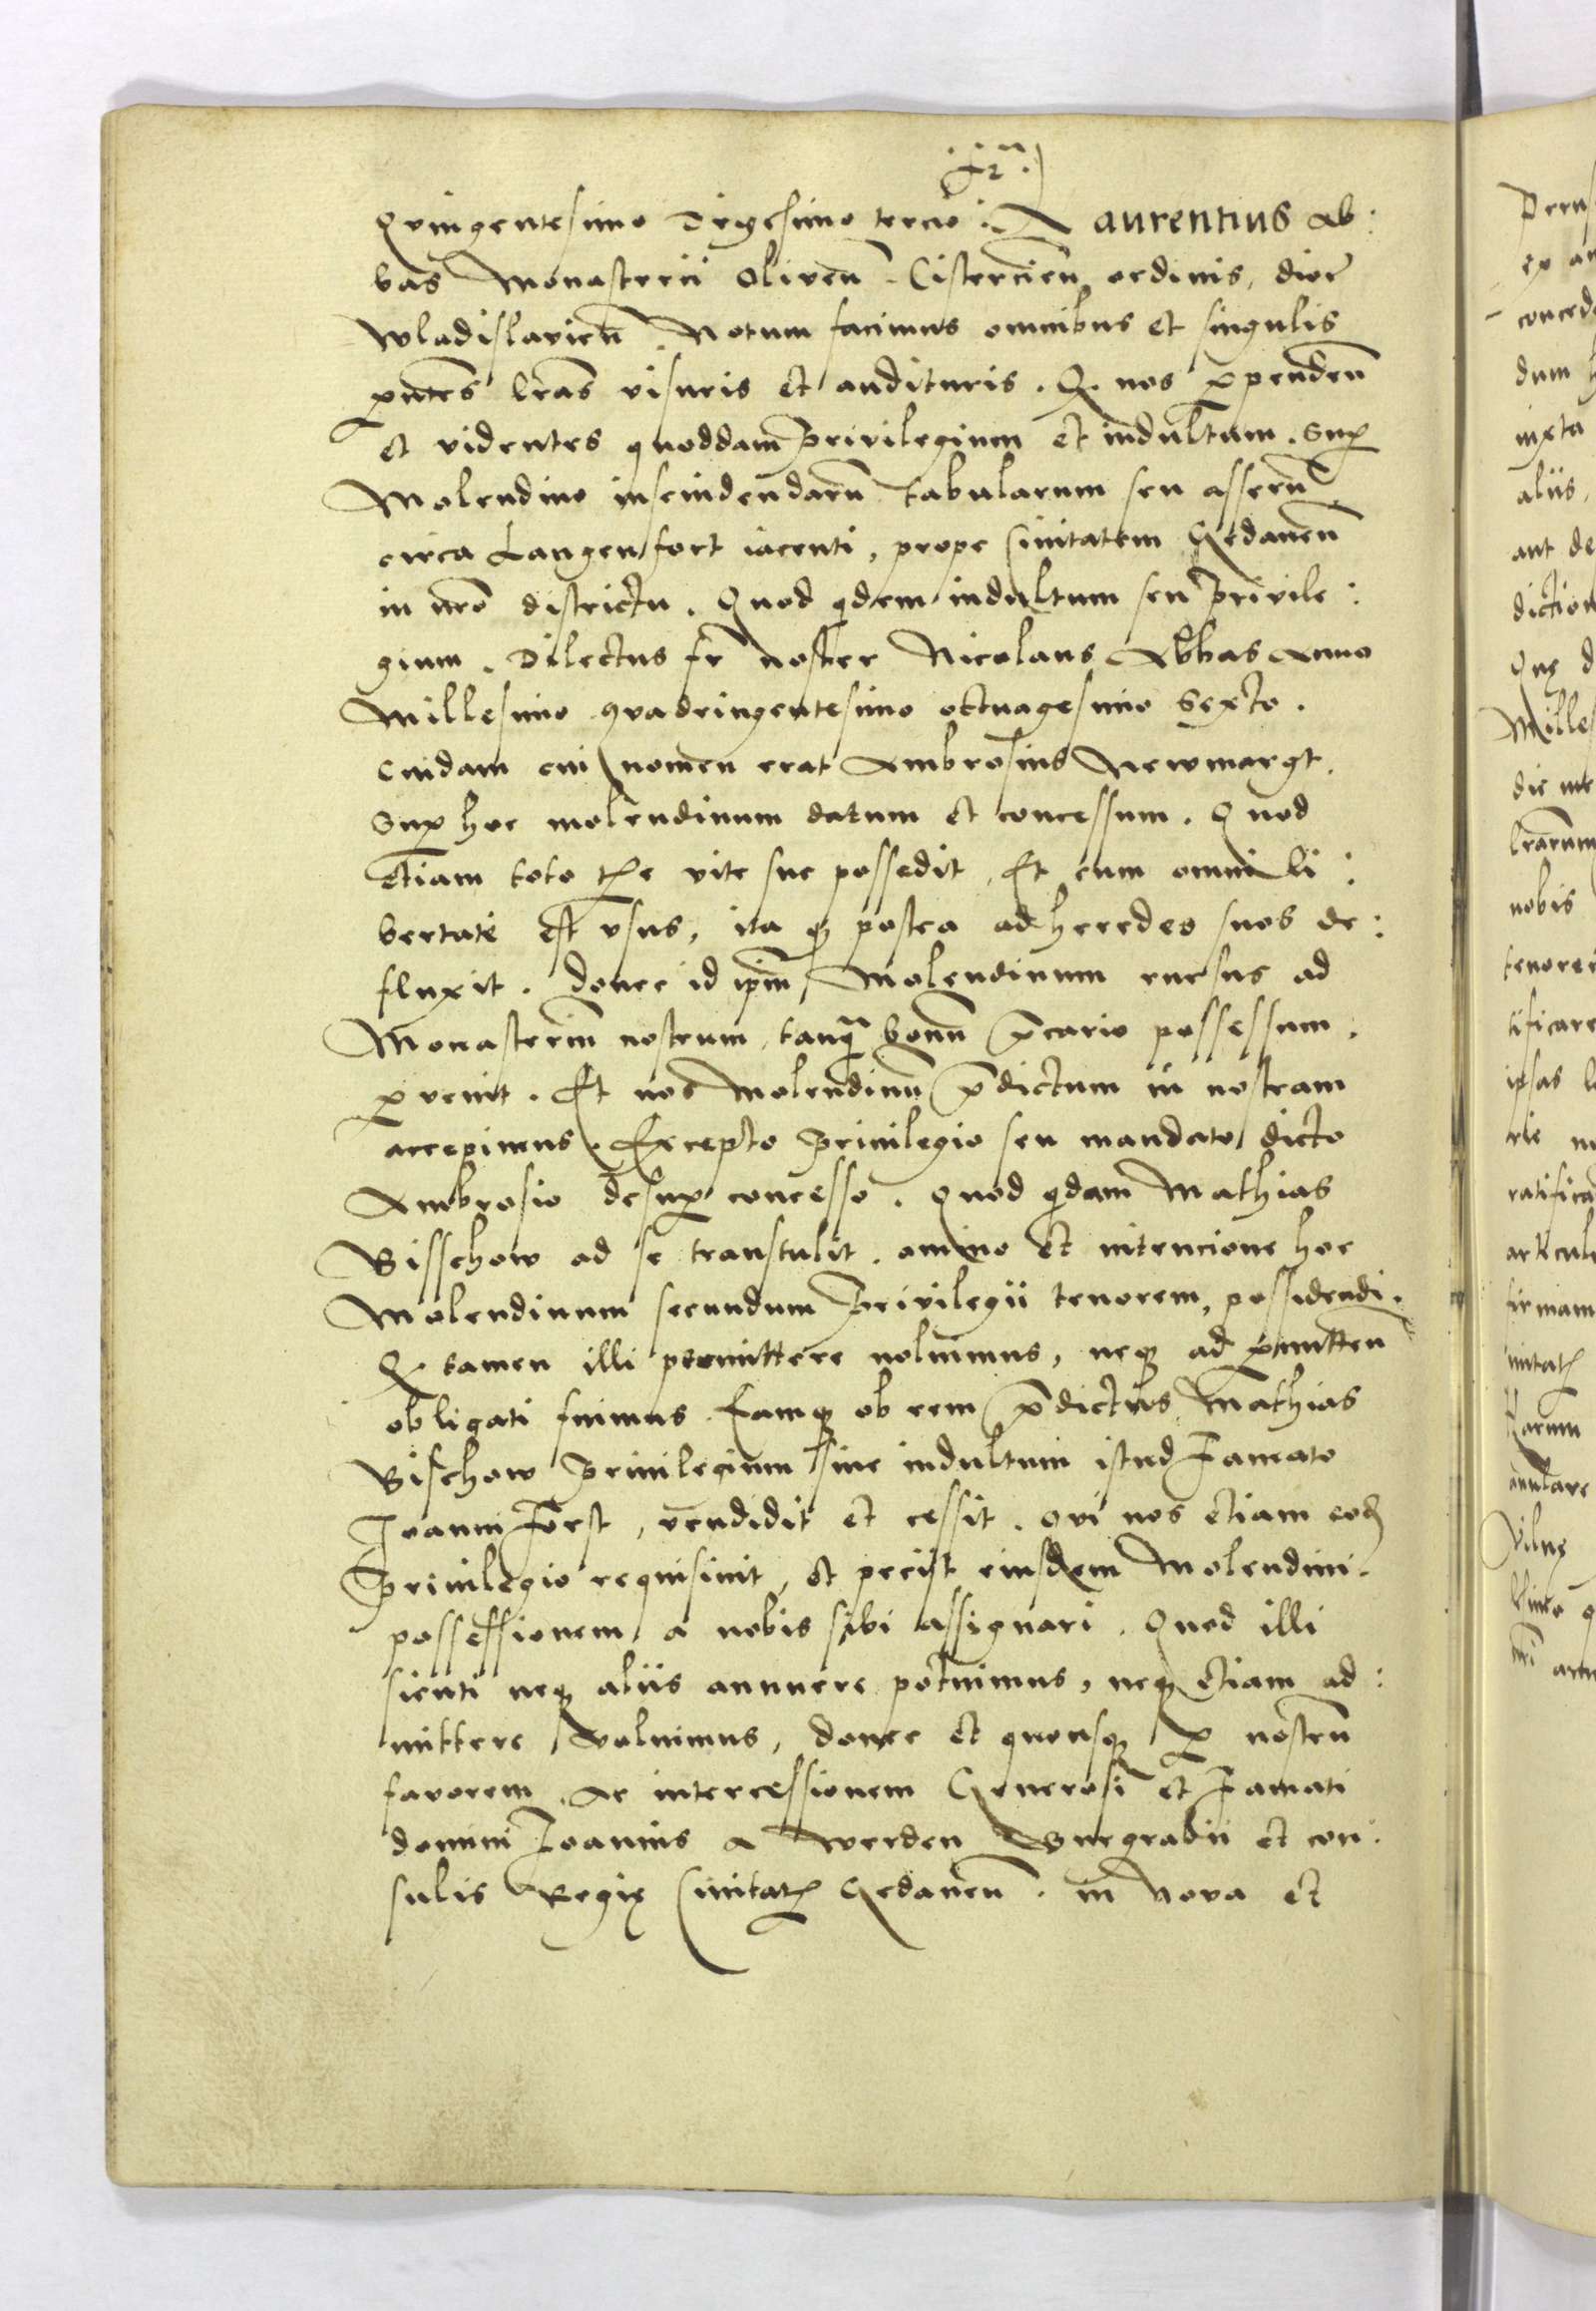 Quingentesimo Trigesimo tercio :. Laurentius Ab:
bas Monasterii Oliven̄ . Cistercien̄ ordinis, dioc̄
Wladislavien̄ . Notum facimus omnibus et singulis
pn̄tes lr̄as visuris et audituris . Q. nos ꝑpenden̄
et videntes quoddam Privilegium et indultum . Suꝑ
Molendino inscindendarū tabularum seu asserū
circa Langenfort iacenti, prope Civitatem Gedanen̄
in nr̄o districtu . Quod qdem indultum seu Privile:
gium . Dilectus fr̄ noster Nicolaus Abbas Anno
Millesimo quadringentesimo octuagesimo Sexto .
Cuidam cui nomen erat Ambrosius Newmargt .
Suꝑ hoc molendinum datum et concessum . Quod
etiam toto tꝑe vite sue possedit, Et cum omni li:
bertate est usus, ita qꝫ postea ad heredes suos de:
fluxit . donec id ipm̄ Molendinum rursus ad
Monasteriū nostrum, tanqᵃ bonū p̄cario possessum .
ꝑvenit . Et nos Molendinū p̄dictum in nostram
accepimus . Excepto Privilegio seu mandato dicto
Ambrosio desuꝑ concesso . Quod qdam Mathias
Bisschow ad se transtulit . animo et intencione hoc
Molendinum secundum Privilegii tenorem, possidendi .
Q. tamen illi permittere noluimus, neqꝫ ad ꝑmitten̄
obligati fuimus . Eamqꝫ ob rem p̄dictus Mathias
Bischow Privilegium sive indultum istud Famato
Joanni Forst, vendidit et cessit . Qui nos etiam eodꝫ
Privilegio requisivit, et peciit eiusdem Molendini .
possessionem a nobis sibi assignari . Quod illi
sicuti neqꝫ aliis annuere potuimus, neqꝫ etiam ad:
mittere voluimus, donec et quousqꝫ ꝑ nostrū
favorem . Ac intercessionem Generosi et Famati
domini Joannis a Werden Burgrabii et con:
sulis Regię Civitatꝭ Gedanen̄ . in nova et